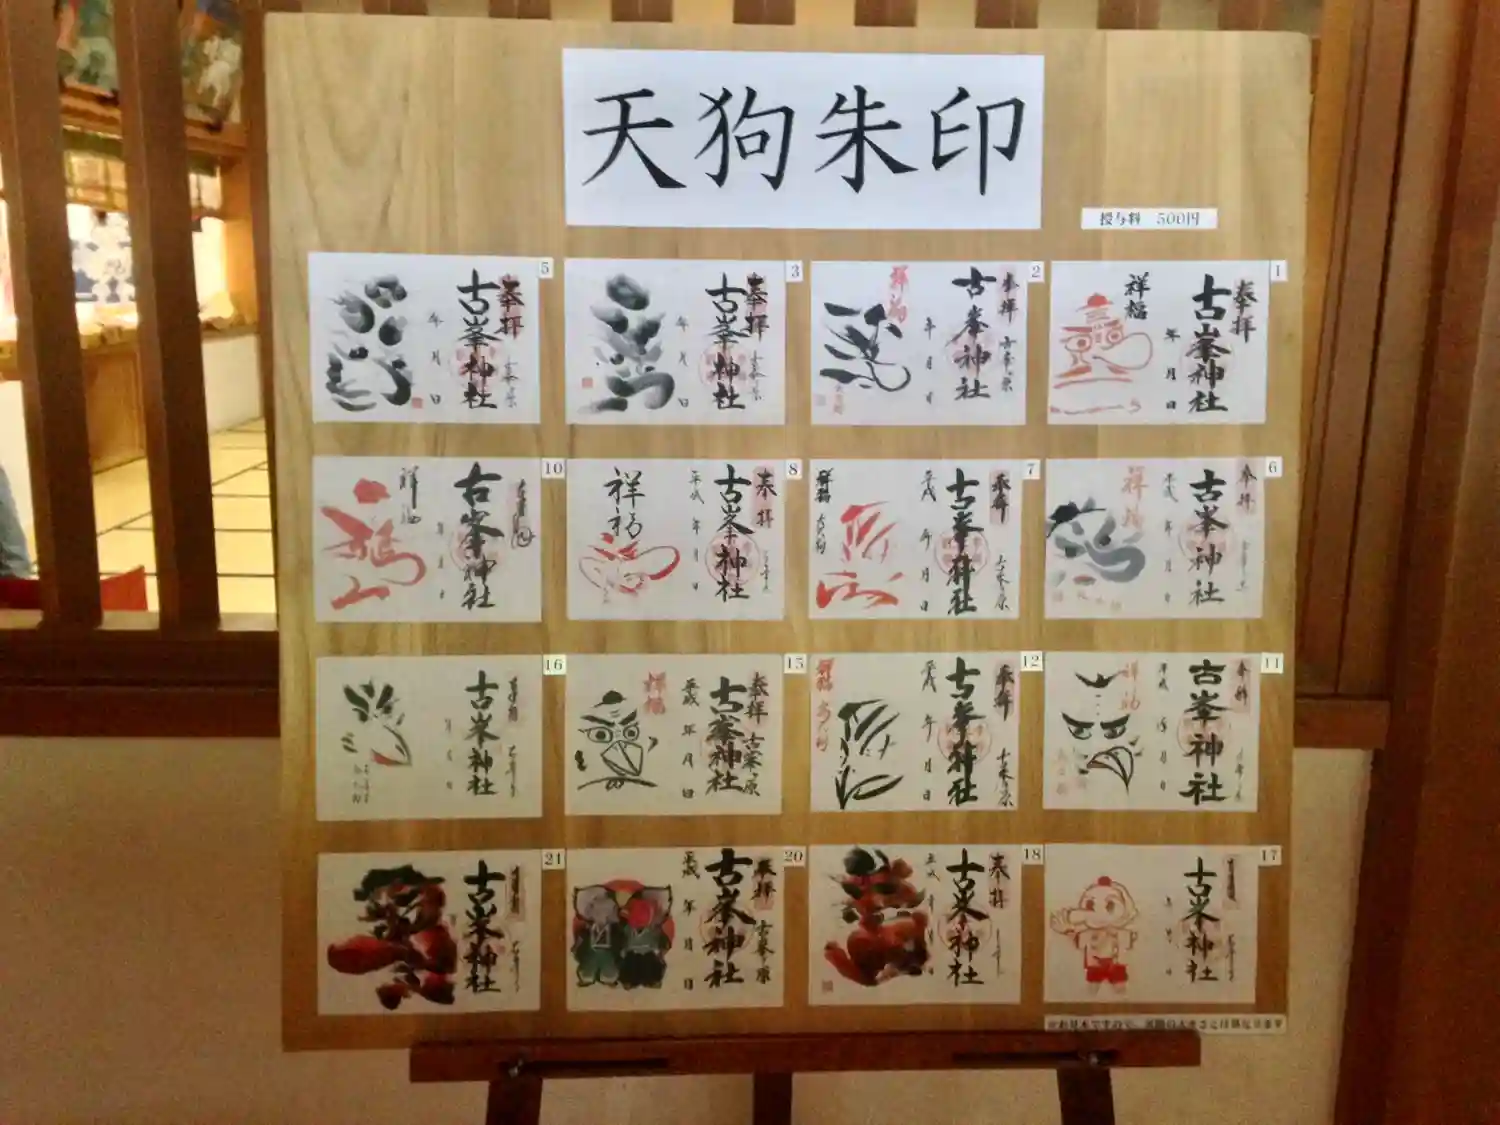 天狗朱印
授与料 500円
1
奉拝
古峯神社
年 月 日
祥福
2
奉拝
古峯原
古峯神社
年 月 日
祥福
3
奉拝
古峯神社
年 月 日
5
奉拝
古峯神社
年 月 日
6
奉拝
古峯神社
平成 年 月 日
祥福
7
奉拝
古峯原
古峯神社
平成 年 月 日
祥福
8
奉拝
古峯神社
平成 年 月 日
祥福
10
古峯神社
祥福
11
奉拝
古峯神社
平成 年 月 日
祥福
12
奉拝
古峯原
古峯神社
平成 年 月 日
祥福
15
奉拝
古峯原
古峯神社
平成 年 月 日
祥福
16
古峯神社
17
古峯神社
18
奉拝
古峯神社
20
奉拝
古峯原
古峯神社
平成 年 月 日
21
古峯神社